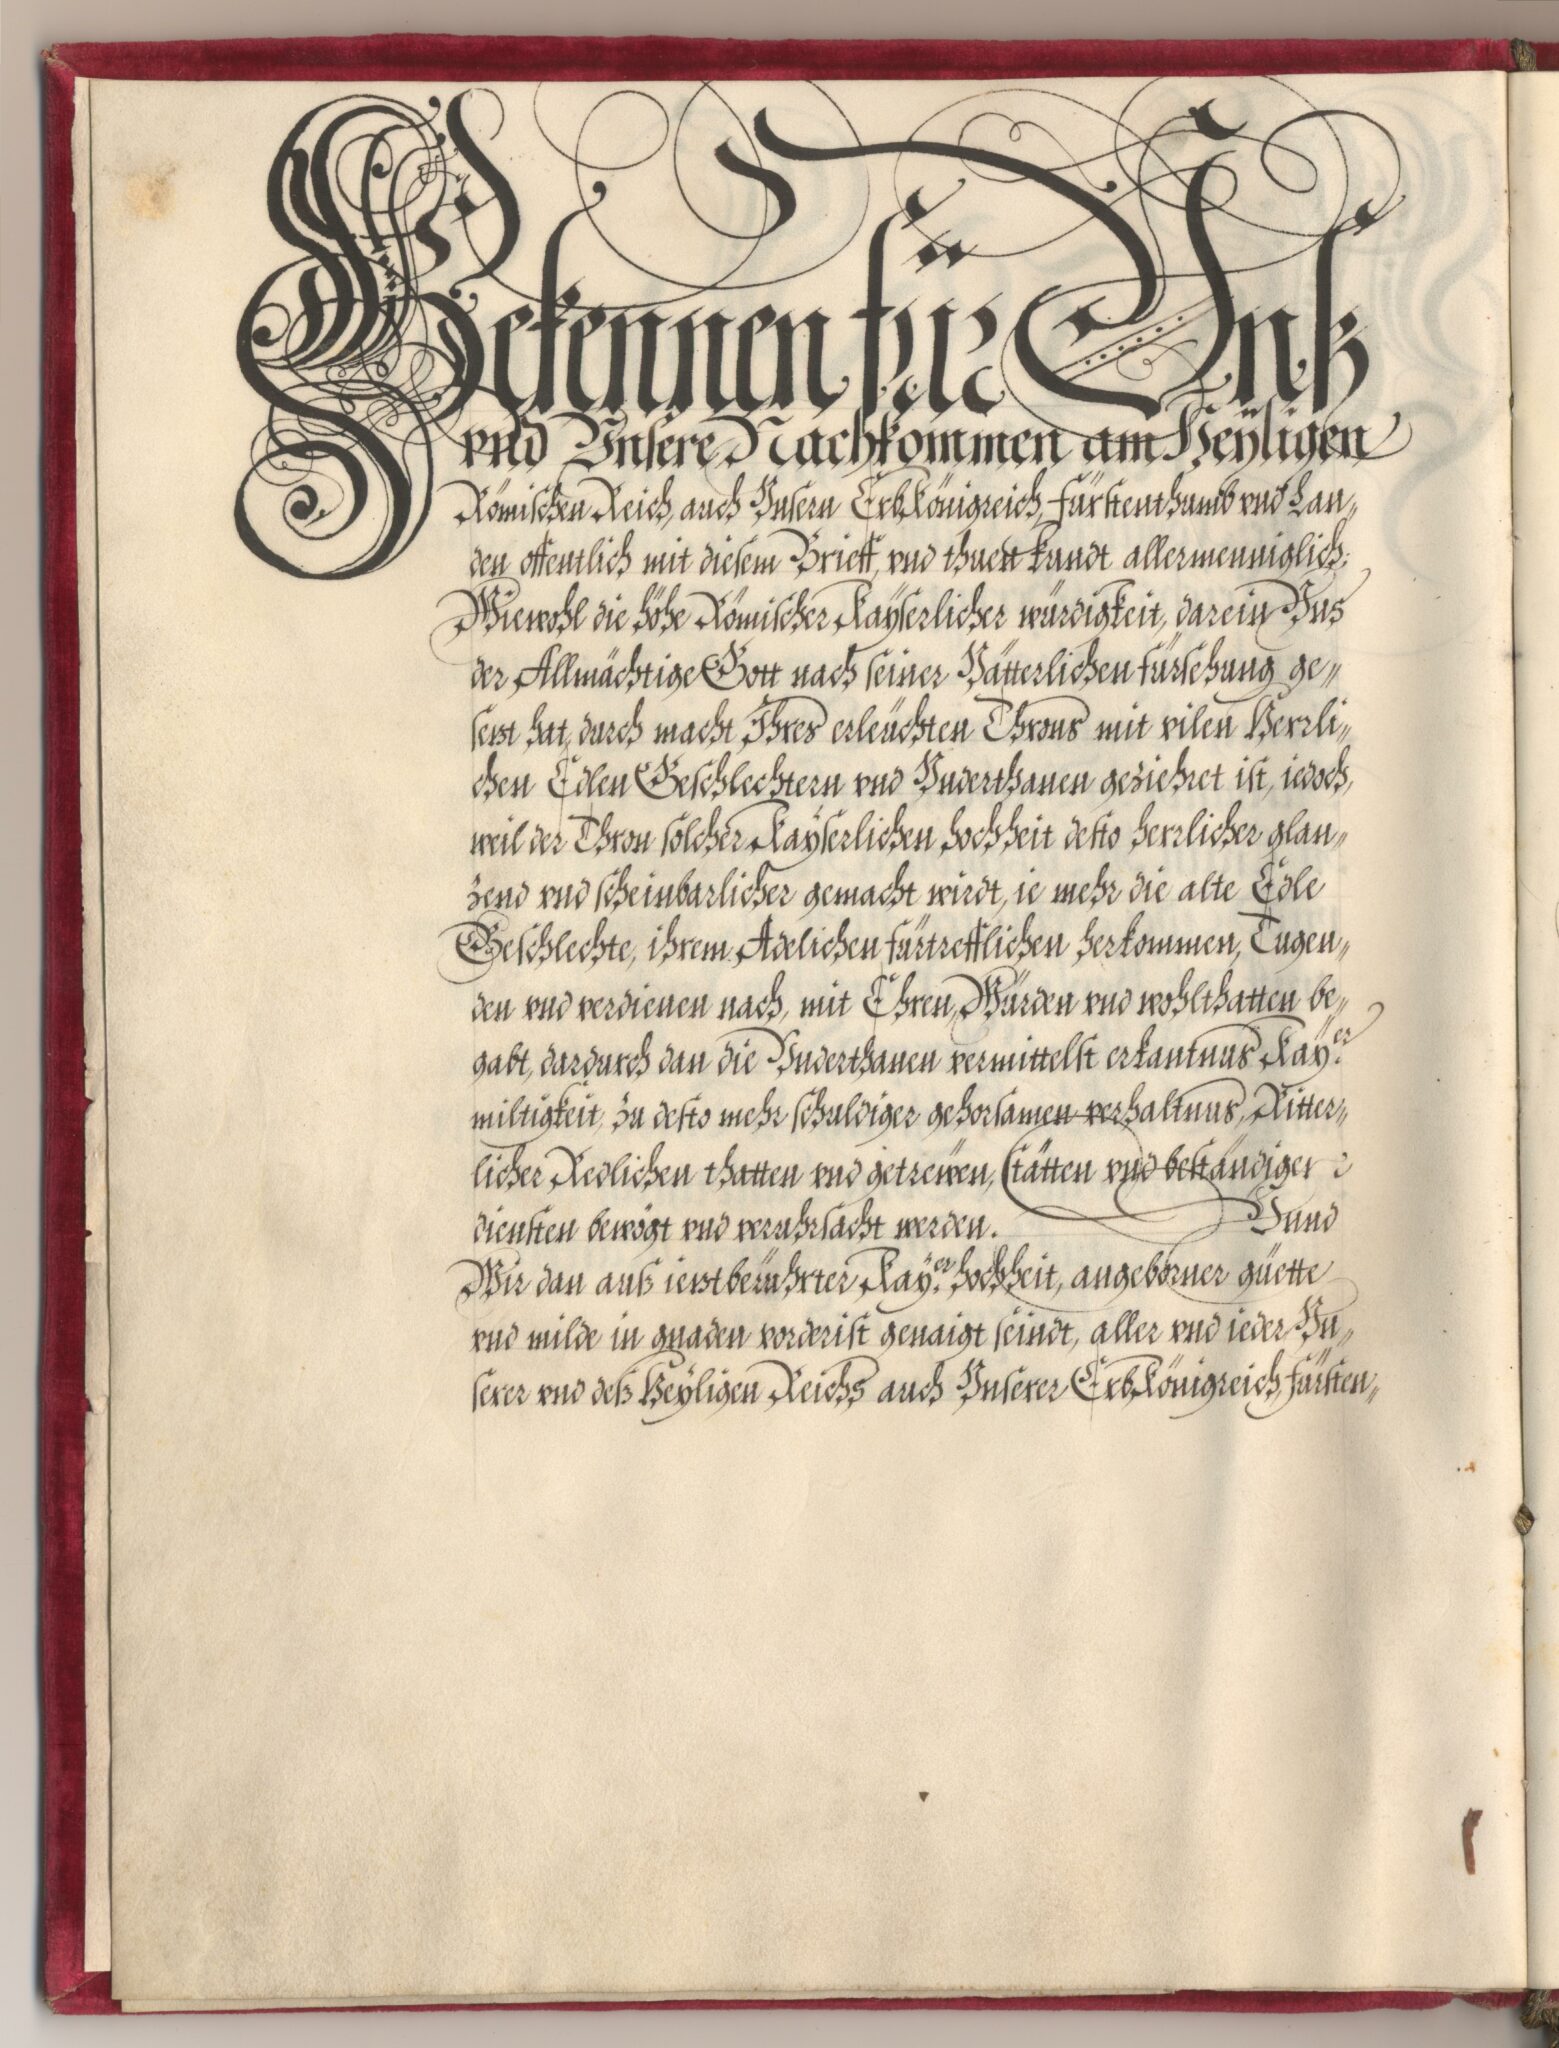 Bekennen für Unß
vnd Vnsere Nachkommen am Heÿligen
Römischen Reich, auch Vnsern ErbKönigreich, Fürstenthumb vnd Lan„
den offentlich mit diesem Brieff, vnd thuen kundt allermenniglich:
Wiewohl die höhe Römischer Kaÿserlicher würdigkeit, darein Vns
der Allmächtige Gott nach seiner Vätterlichen fürsehung ge„
sezt hat, durch macht Ihres erleüchten Throns mit vilen Herrli„
chen Edlen Geschlechtern vnd Vnderthanen geziehret ist, iedoch,
weil der Thron solcher Kaÿserlichen hochheit desto herrlicher glan„
zend vnd scheinbarlicher gemacht wirdt, ie mehr die alte Edle
Geschlechte, ihrem Adelichen fürtrefflichen herkommen, Tugen„
den vnd verdienen nach, mit Ehren, Würden vnd wohlthatten be„
gabt, dardurch dan die Vnderthanen vermittelst erkantnus Kaÿ.er
miltigkeit, zu desto mehr schuldiger gehorsamen verhaltnus, Ritter„
licher Redlichen thatten vnd getrewen, stätten vnd beständiger
diensten bewögt vnd veruhrsacht werden. Vnnd
Wir dan auß ieztberührter Kaÿ.er hochheit, angeborner güette
vnd milde in gnaden vorderist genaigt seindt, aller vnd ieder Vn„
serer vnd deß Heÿligen Reichs auch Vnserer ErbKönigreich, Fürsten„